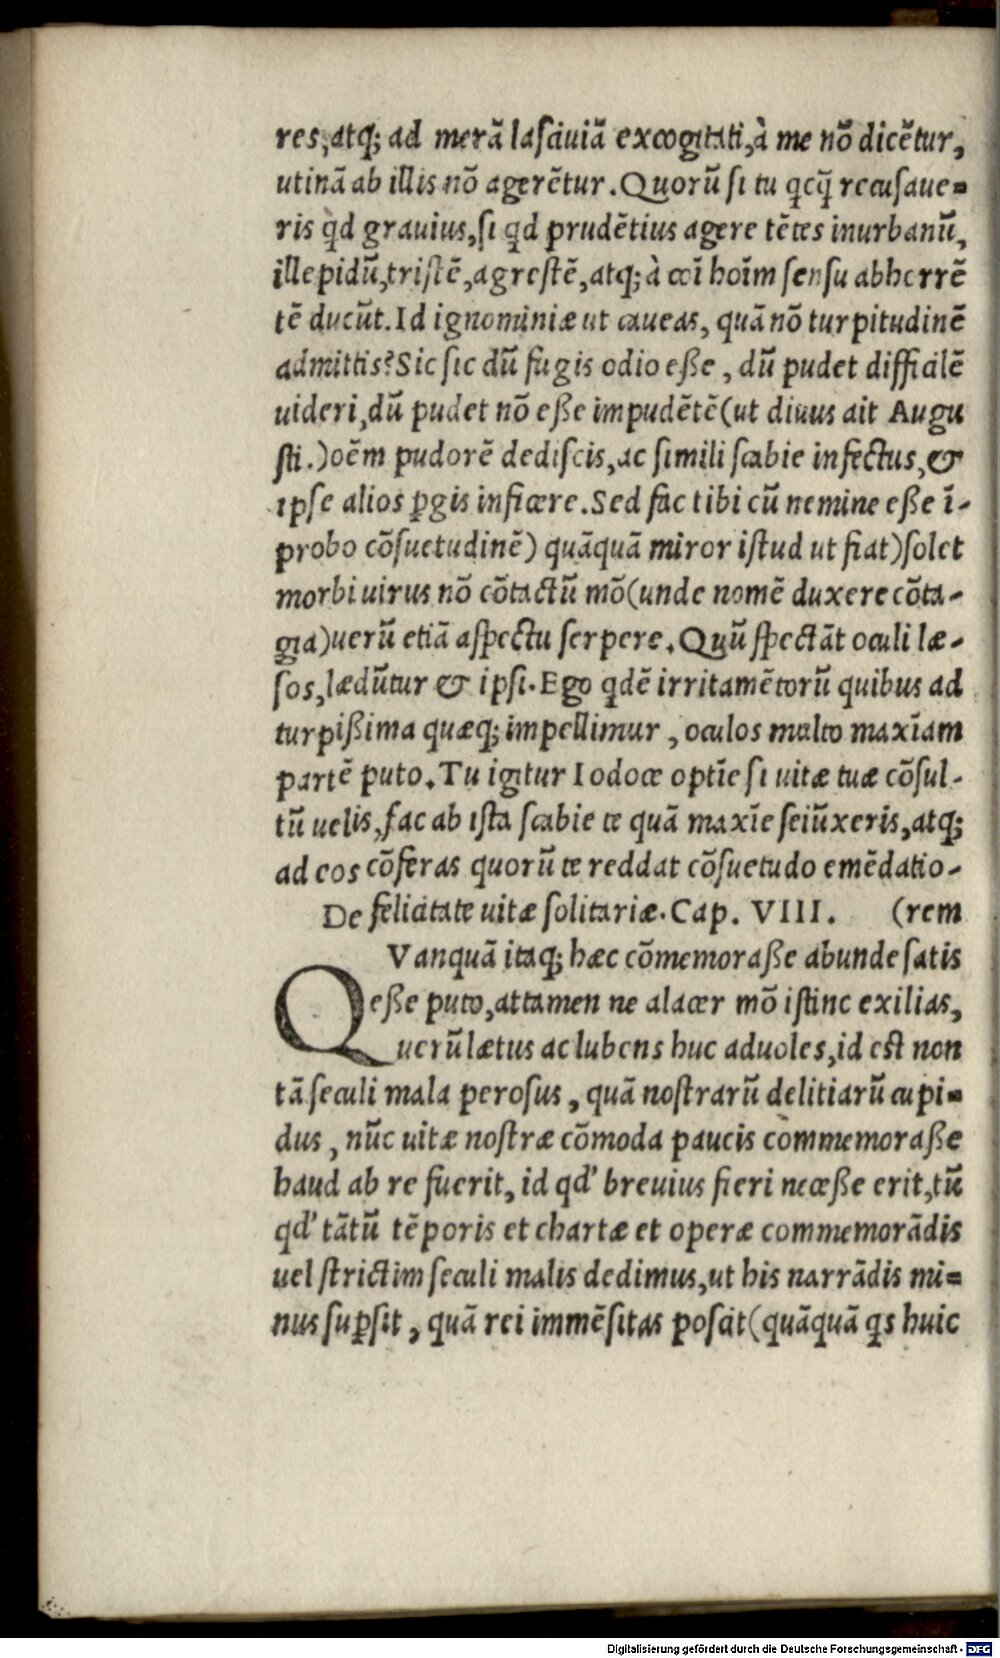 res, atq; ad merã lasciuiã excogitati, à me nõ dicẽtur,
utinã ab illis nõ agerẽtur. Quorũ si tu qcq̃ recusaue=
ris qd grauius, si qd prudẽtius agere tẽtes inurbanũ,
illepidũ, tristẽ, agrestẽ, atq; à coĩ hoĩm sensu abhorrẽ
tẽ ducũt. Id ignominiæ ut caueas, quã nõ turpitudinẽ
admittis? Sic sic dũ fugis odio eße, dũ pudet difficilẽ
uideri, dũ pudet nõ eße impudẽtẽ (ut diuus ait Augu
sti.) oẽm pudorẽ dediscis, ac simili scabie infectus, &
ipse alios ꝑgis inficere. Sed fac tibi cũ nemine eße ĩ-
probo cõsuetudinẽ) quãquã miror istud ut fiat) solet
morbi uirus nõ cõtactũ mõ (unde nomẽ duxere cõta-
gia) uerũ etiã aspectu serpere. Quũ spectãt oculi læ-
sos, lædũtur & ipsi. Ego qdẽ irritamẽtorũ quibus ad
turpißima quæq; impellimur, oculos multo maxĩam
partẽ puto. Tu igitur Iodoce optĩe si uitæ tuæ cõsul-
tũ uelis, fac ab ista scabie te quã maxĩe seiũxeris, atq;
ad eos cõferas quorũ te reddat cõsuetudo emẽdatio-
De felicitate uitæ solitariæ. Cap. VIII. (rem
QVanquã itaq; hæc cõmemoraße abunde satis
eße puto, attamen ne alacer mõ istinc exilias,
uerũ lætus ac lubens huc aduoles, id est non
tã seculi mala perosus, quã nostrarũ delitiarũ cupi=
dus, nũc uitæ nostræ cõmoda paucis commemoraße
haud ab re fuerit, id qd' breuius fieri neceße erit, tũ
qd' tãtũ tẽporis et chartæ et operæ commemorãdis
uel strictim seculi malis dedimus, ut his narrãdis mi=
nus suꝑsit, quã rei immẽsitas poscit (quãquã qs huic
Digitalisierung gefördert durch die Deutsche Forschungsgemeinschaft - DFG